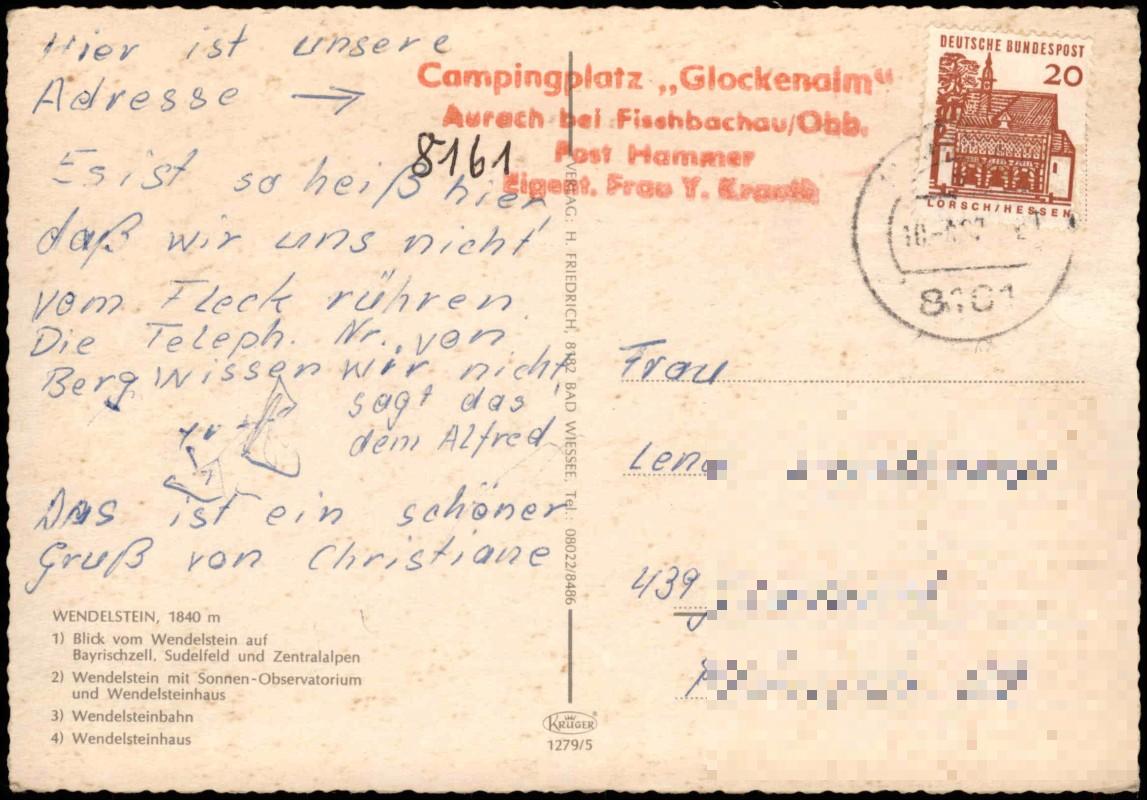 Hier ist unsere
Adresse →
Campingplatz „Glockenalm“
Aurach bei Fischbachau/Obb.
Post Hammer
Eigent. Frau Y. Krauth
8161
Es ist so heiß hier,
daß wir uns nicht
vom Fleck rühren.
Die Teleph. Nr. von
Berg wissen wir nicht
sagt das
dem Alfred
Das ist ein schöner
Gruß von Christiane
WENDELSTEIN, 1840 m
1) Blick vom Wendelstein auf
Bayrischzell, Sudelfeld und Zentralalpen
2) Wendelstein mit Sonnen-Observatorium
und Wendelsteinhaus
3) Wendelsteinbahn
4) Wendelsteinhaus
VERLAG: H. FRIEDRICH, 8182 BAD WIESSEE, Tel.: 08022/8486
KRÜGER
1279/5
DEUTSCHE BUNDESPOST
20
LORSCH/HESSEN
Frau
439